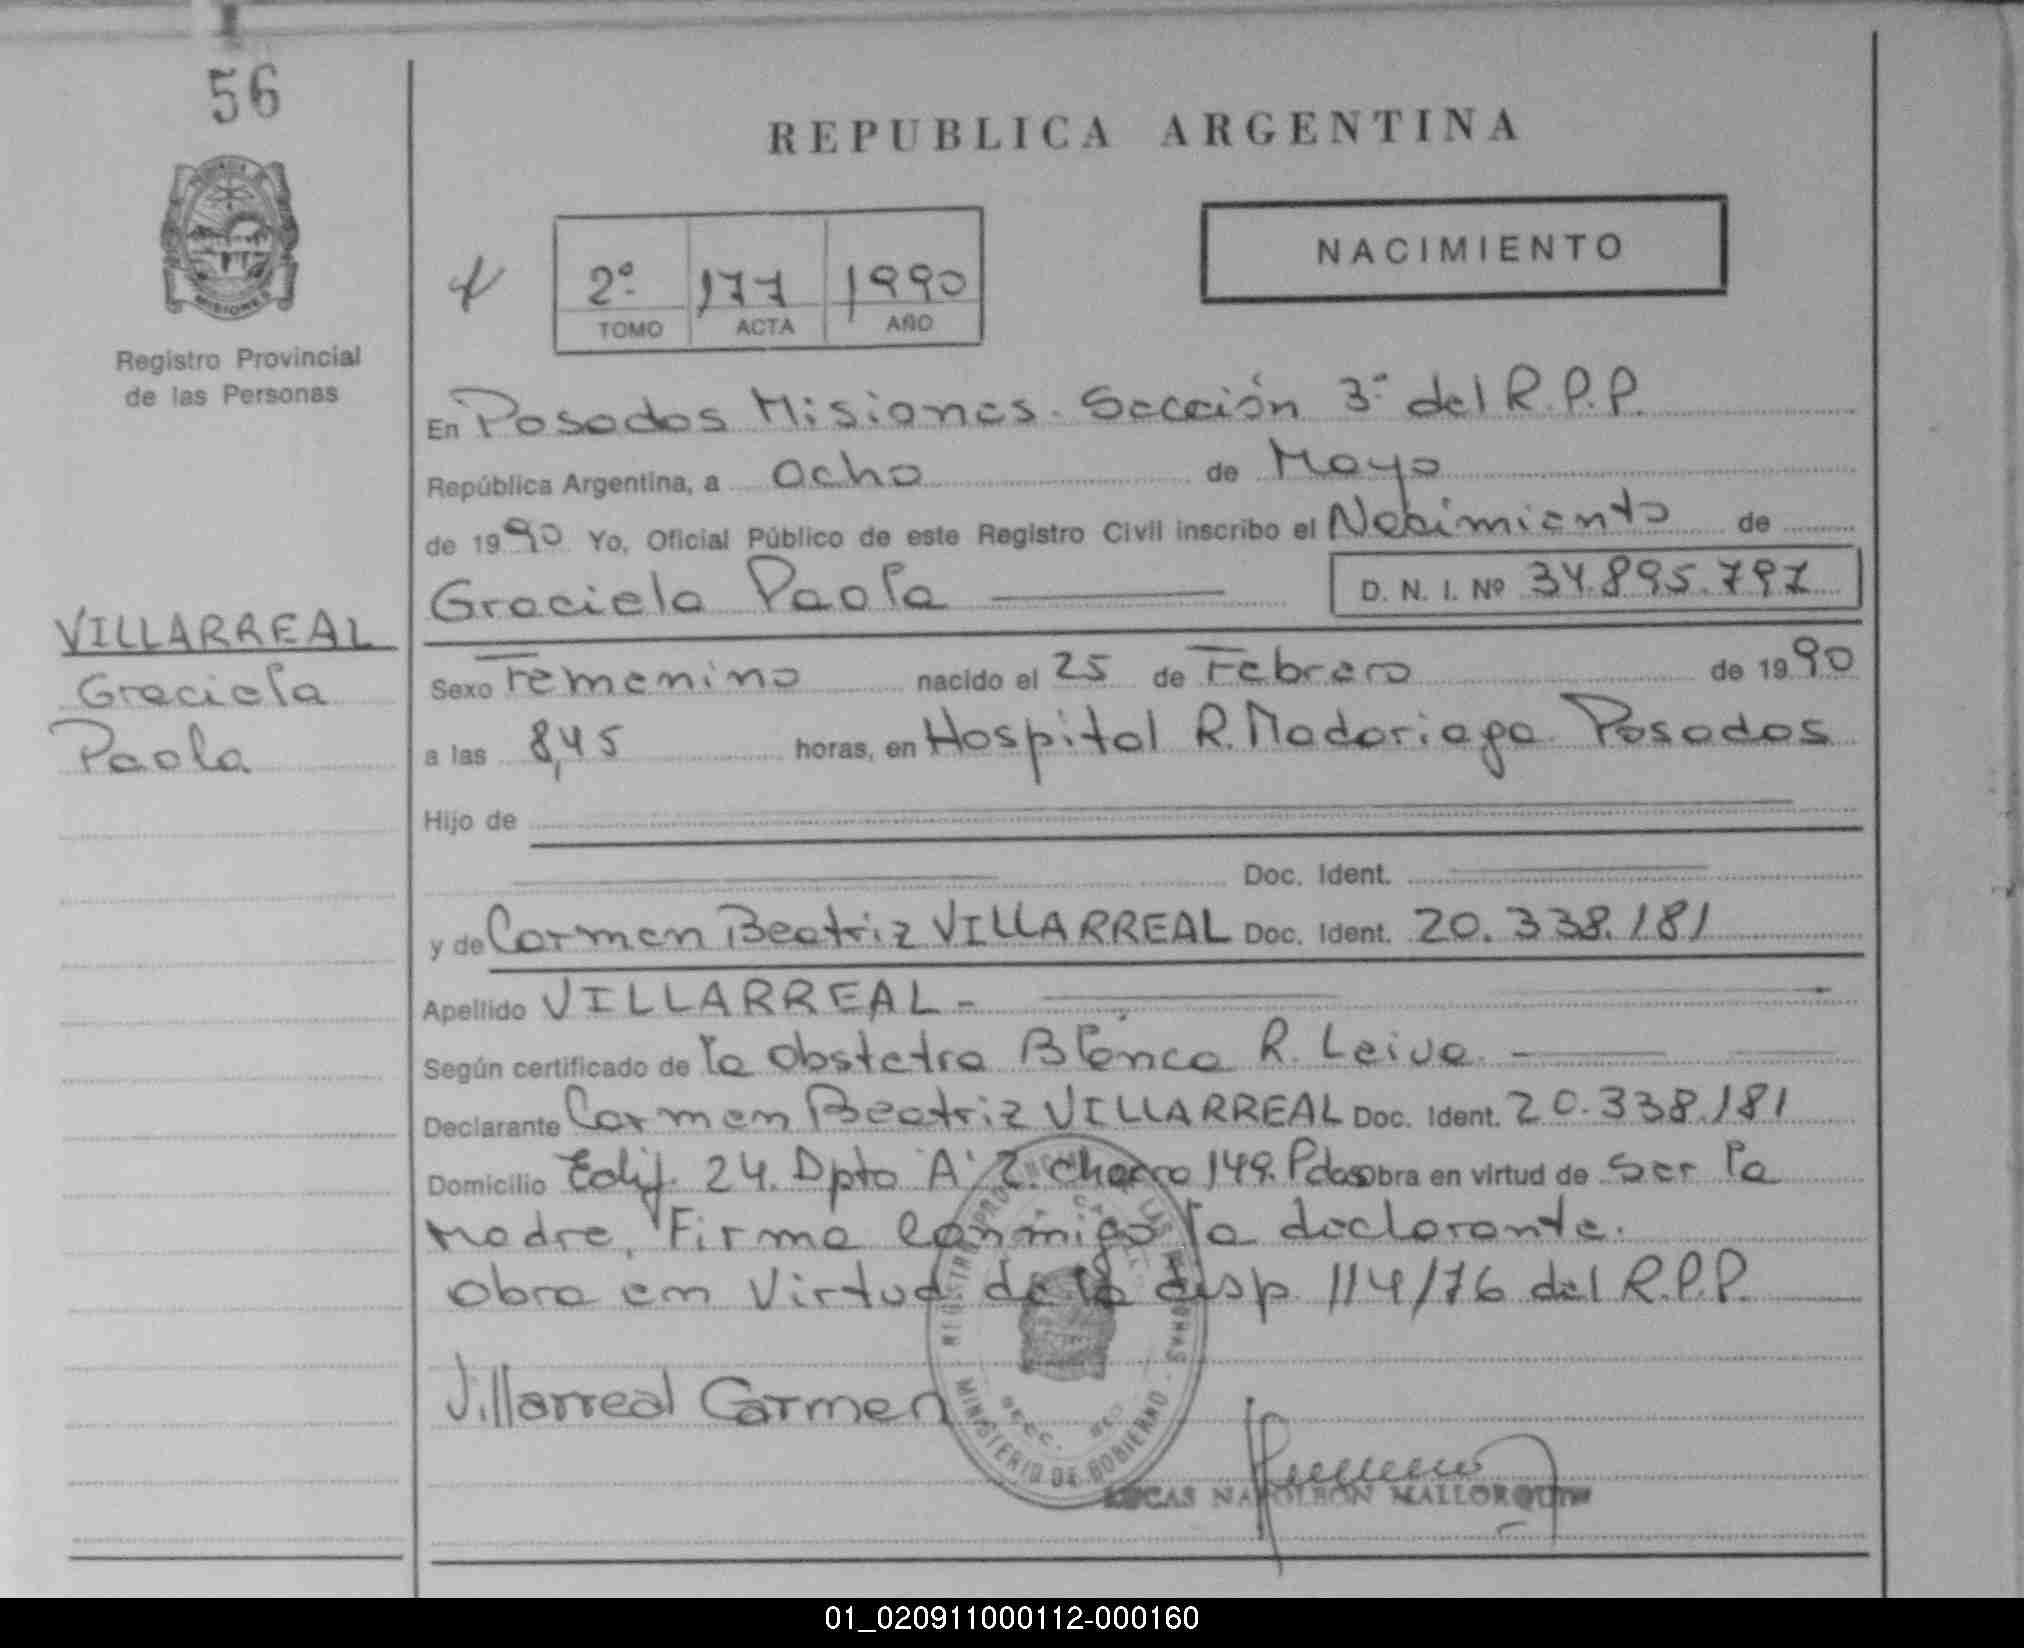 56
REPUBLICA ARGENTINA
NACIMIENTO
2º 177 1990
TOMO ACTA AÑO
MISIONES
Registro Provincial
de las Personas
En Posadas Misiones. Sección 3ª del R.P.P.
República Argentina, a Ocho de Mayo
de 1990 Yo, Oficial Público de este Registro Civil inscribo el Nacimiento de
Graciela Paola D. N. I. Nº 34.895.797
VILLARREAL
Graciela
Paola
Sexo Femenino nacido el 25 de Febrero de 1990
a las 8,45 horas, en Hospital R. Madariaga Posadas
Hijo de
Doc. Ident.
y de Carmen Beatriz VILLARREAL Doc. Ident. 20.338.181
Apellido VILLARREAL -
Según certificado de la Obstetra Blanca R. Leiva
Declarante Carmen Beatriz VILLARREAL Doc. Ident. 20.338.181
Domicilio Edif. 24. Dpto "A" 149. Pdas obra en virtud de ser la
Madre, Firma conmigo la declarante.
obra en Virtud de la disp 114/76 del R.P.P.
Villarreal Carmen
MINISTERIO DE GOBIERNO
LUCAS NAPOLEON MALLORQUIN
01_020911000112-000160